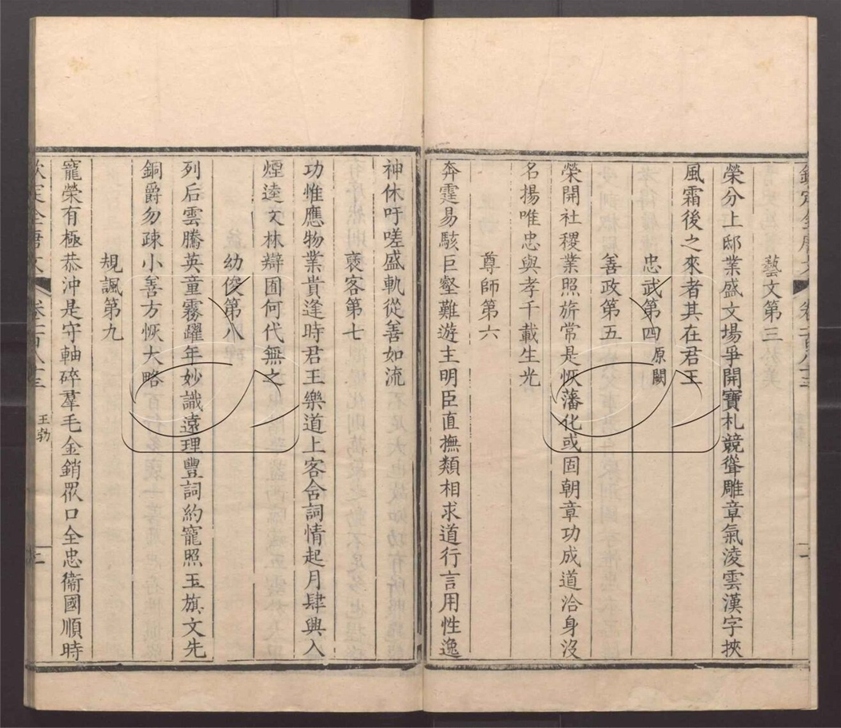 藝文第三
榮分上邸業盛文場爭開寶札競聳雕章氣淩雲漢字挾
風霜後之來者其在君王
忠武第四原闕
善政第五
榮開社稷業照旂常是恢藩化或固朝章功成道洽身沒
名揚唯忠與孝千載生光
尊師第六
奔霆易駭巨壑難游主明臣直撫類相求道行言用性逸
神休吁嗟盛軌從善如流
褒客第七
功惟應物業貴逢時君王樂道上客含詞情起月肆興入
煙逵文林辯囿何代無之
幼俊第八
列后雲騰英童霧躍年妙識遠理豐詞約寵照玉旗文先
銅爵勿疎小善方恢大略
規諷第九
寵榮有極恭沖是守軸碎羣毛金銷眾口全忠衞國順時
欽定全唐文
卷一百八十三
王勃
二